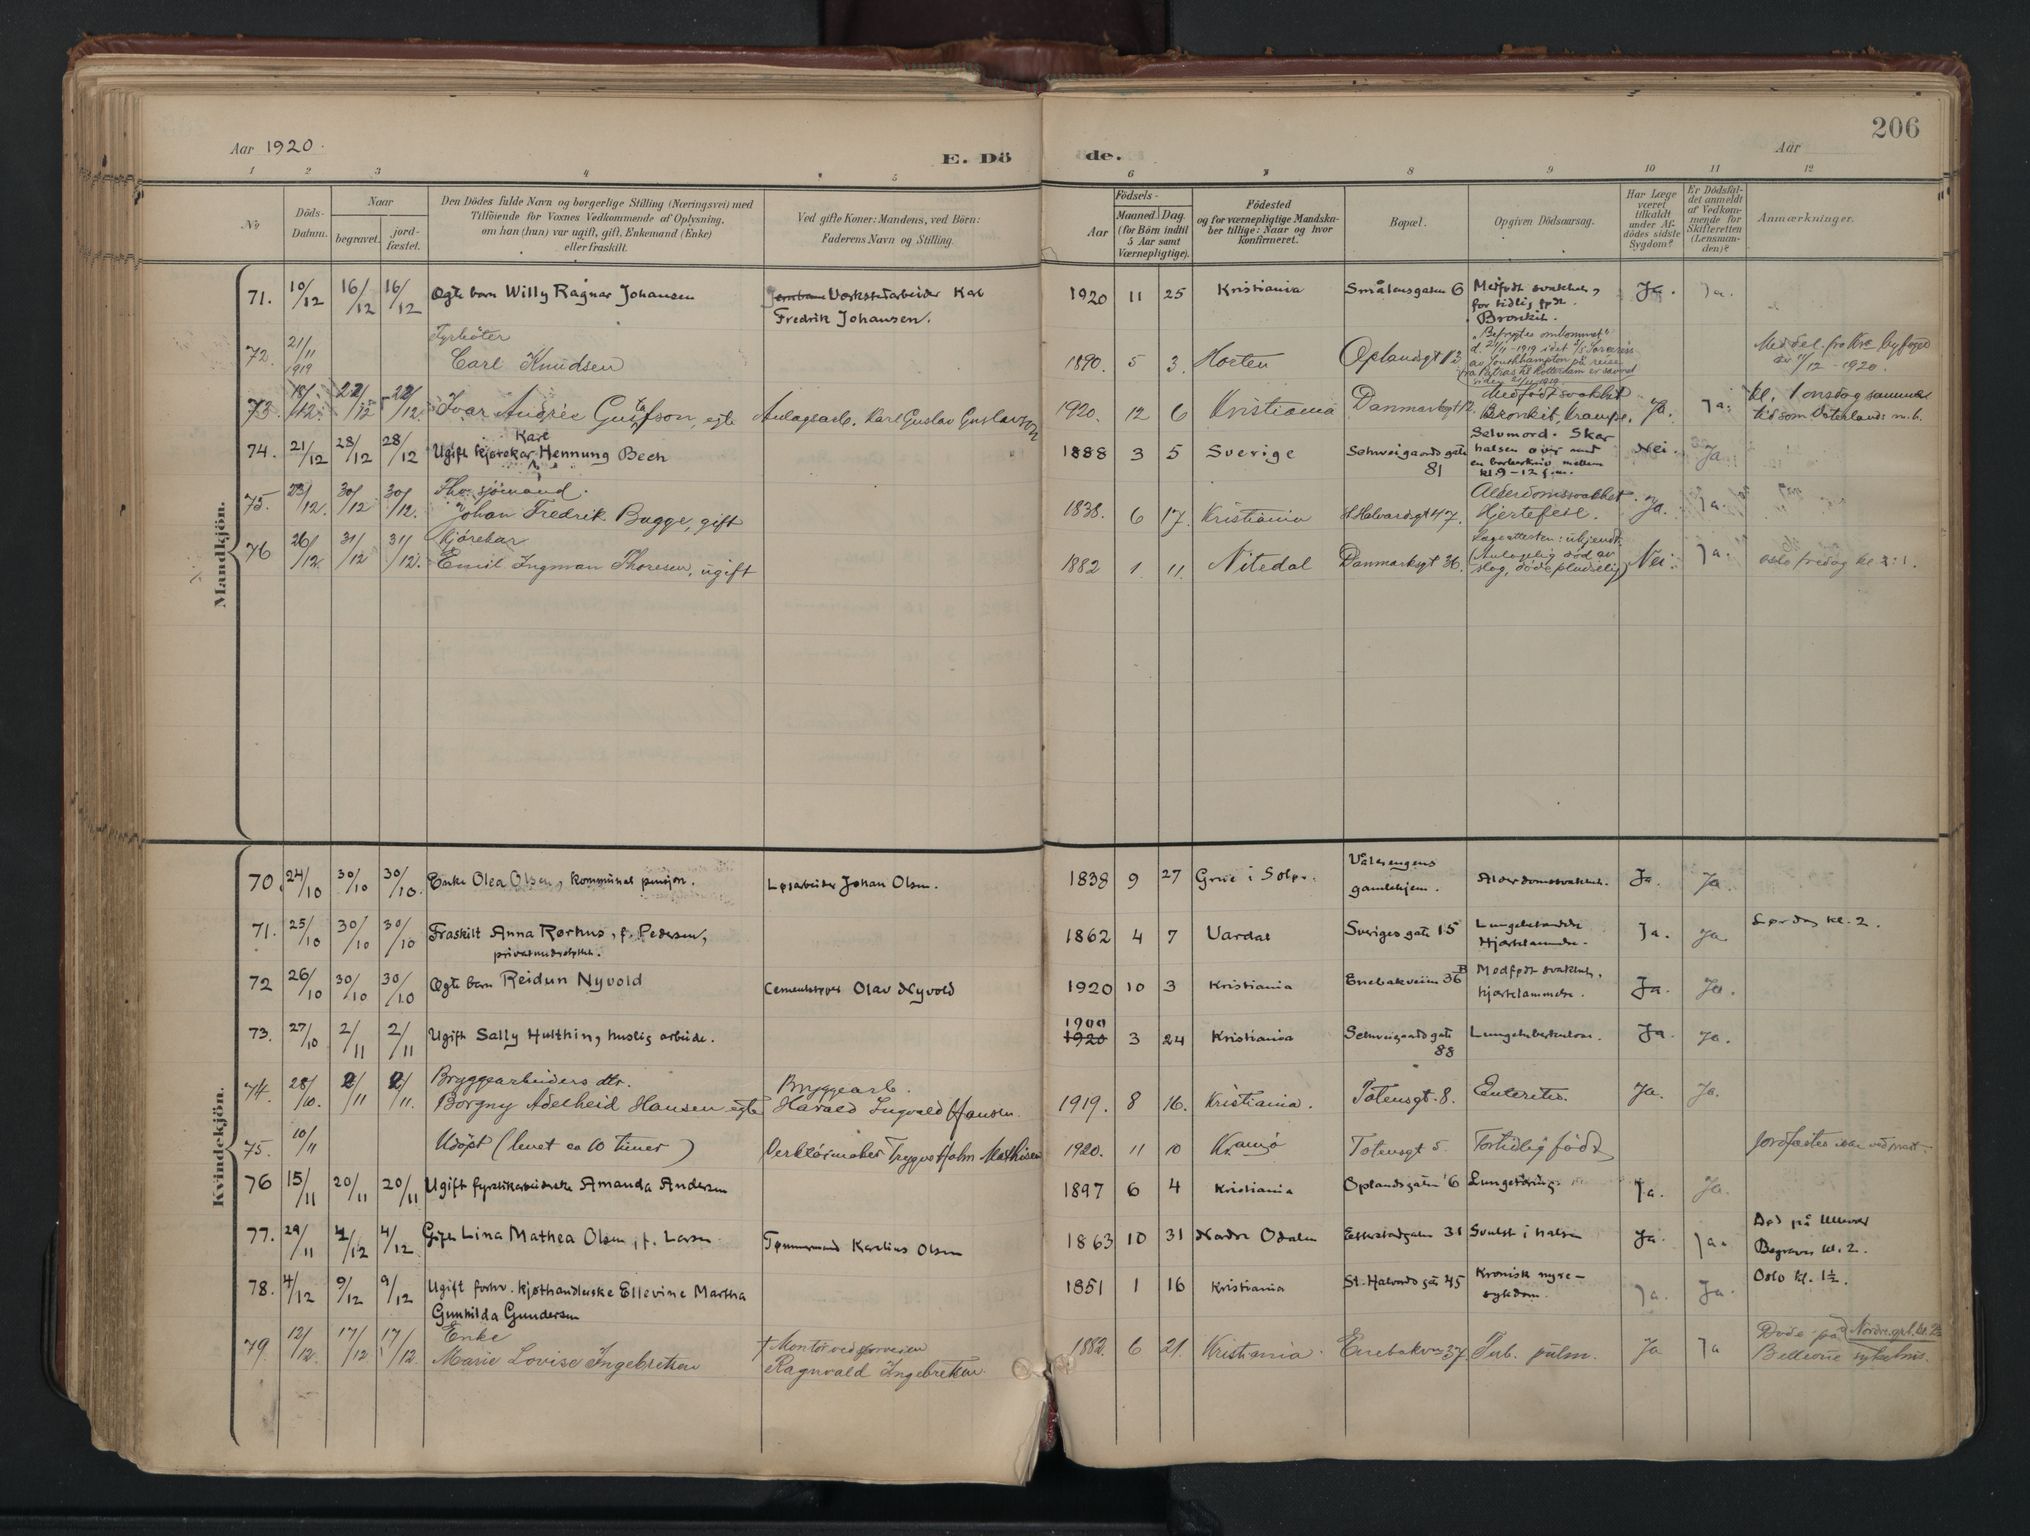 206
Aar 1920.
E. Dö de.
Aar
1 2 3 4 5 6 7 8 9 10 11 12
No
Döds-Datum.
Naar
begravet.
jord-fæstet.
Den Dödes fulde Navn og borgerlige Stilling (Næringsvei) med
Tilföiende for Voxnes Vedkommende af Oplysning,
om han (hun) var ugift, gift, Enkemand (Enke)
eller fraskilt.
Ved gifte Koner: Mandens, ved Börn:
Faderens Navn og Stilling.
Födsels-
Aar
Maaned. Dag.
(for Börn indtil
5 Aar samt
Værnepligtige).
Födested
og for værnepligtige Mandska-
ber tillige: Naar og hvor
konfirmeret.
Bopæl.
Opgiven Dödsaarsag.
Har Læge
været
tilkaldt
under Af-
dödes sidste
Sygdom?
Er Dödsfal-
det anmeldt
af Vedkom-
mende for
Skifteretten
(Lensman-
den)?
Anmærkninger.
Mandkjön.
71. 10/12 16/12 16/12 Ægte barn Willy Ragnar Johansen Verkstedarbeider Karl
Fredrik Johansen. 1920 11 25 Kristiania Smålensgaten 6 Medfødt svakhet,
for tidlig født.
Bronkit. Ja. Ja.
72. 21/11 1919 Fyrbøter
Carl Knudsen 1890. 5 3. Horten Oplandsgt 13 "Befrygtes omkommet"
d. 21/11-1919 idet
av Southhampton på reise
fra Patras til Rotterdam er savnet
siden 21/11 1919. Meddel. fra Kra byfoged
av 11/12-1920.
73. 18/12. 22/12 22/12. Ivar Andrée Gustafson, egte Anlagsarb. Karl Gustav Gustavson 1920. 12 6 Kristiania Danmarksgt 12. Medfødt svakhet
Bronkit, Krampe. Ja. Ja. kl. 1 onsdag sammen
tid som Vaterland: m.b.
74. 21/12 28/12 28/12 Ugift kjørekar Karl Hennung Bech 1888 3 5 Sverige Schweigaards gate
81 Selvmord. Skar
halsen over med
en barberkniv mellem
kl. 9-12 f.m. Nei. Ja
75. 23/12. 30/12 30/12. Fhv. sjømand.
Johan Fredrik Bugge, gift 1838. 6 17. Kristiania H. Halvardsgt 47. Alderdomssvakhet.
Hjertefeil. Ja. Ja.
76 26/12 31/12 31/12. Kjørekar
Emil Ingman Thoresen, ugift 1882 1 11 Nitedal Danmarksgt 36. Lægeattesten: ukjendt.
(Antagelig død av
slag, døde pludselig) Nei. Ja. Oslo fredag kl 2:1.
Kvindekjön.
70. 24/10 30/10 30/10. Enke Olea Olsen, kommunal pensjon. Løsarbeider Johan Olsen. 1838 9 27 Grue i Solør. Vålerengens
gamlehjem. Alderdomssvakhet. Ja. Ja.
71. 25/10 30/10 30/10 Fraskilt Anna Rørhus, f. Pedersen,
privat understøttet. 1862 4 7 Vardal Sverigesgate 15 Lungebetændelse
Hjertelammelse. Ja. Ja Lørdag kl. 2.
72 26/10 30/10 30/10 Ægte barn Reidun Nyvold Cementstøper Olav Nyvold 1920 10 3 Kristiania Enebakveien 36 B Medfødt svakhet,
hjertelammelse. Ja. Ja.
73. 27/10 2/11 2/11 Ugift Sally Hulthin, huslig arbeide. 1900
1920 3 24 Kristiania Schweigaards gate
88 Lungetuberkulose. Ja. Ja.
74. 28/10. 2/11 2/11. Bryggearbeiders dtr.
Borgny Adelheid Hansen egte Bryggearb.
Harald Ingvald Hansen. 1919. 8 16. Kristiania. Totensgt. 8. Enterites. Ja. Ja.
75. 10/11 Udøpt (levet ca 10 timer) Verktøimaker Trygve Holm Mathisen 1920. 11 10 Kr.ania Totensgt 5. Fortidlig født Jordfæstes ikke ved prest.
76 15/11 20/11 20/11 Ugift fyrstikarbeiderske Amanda Andersen 1897 6 4 Kristiania Oplandsgaten 6 Lungetæring. Ja. Ja.
77. 29/11 4/12 4/12. Gift Lina Mathea Olsen, f. Larsen. Tømmermand Karelius Olsen 1863 10 31 Nordre Odalen Etterstadgaten 31 Svulst i halsen Ja Ja. Død på Ullevål
Begraves kl. 2.
78. 4/12 9/12 9/12 Ugift forhv. kjøthandlerske Ellevine Martha
Gunhilda Gundersen 1851 1 16 Kristiania St. Halvards gate 45 Kronisk nyre-
sykdom. Ja. Ja. Oslo kl. 1½.
79. 12/12. 17/12 17/12. Enke
Marie Lovise Ingebretsen † Montør ved sporveien
Ragnvald Ingebretsen 1882. 6 21. Kristiania. Enebakvn 37. Tub. pulm. Ja Ja Døde på Nordre grl. kl. 2½
Bellevue sykehus.